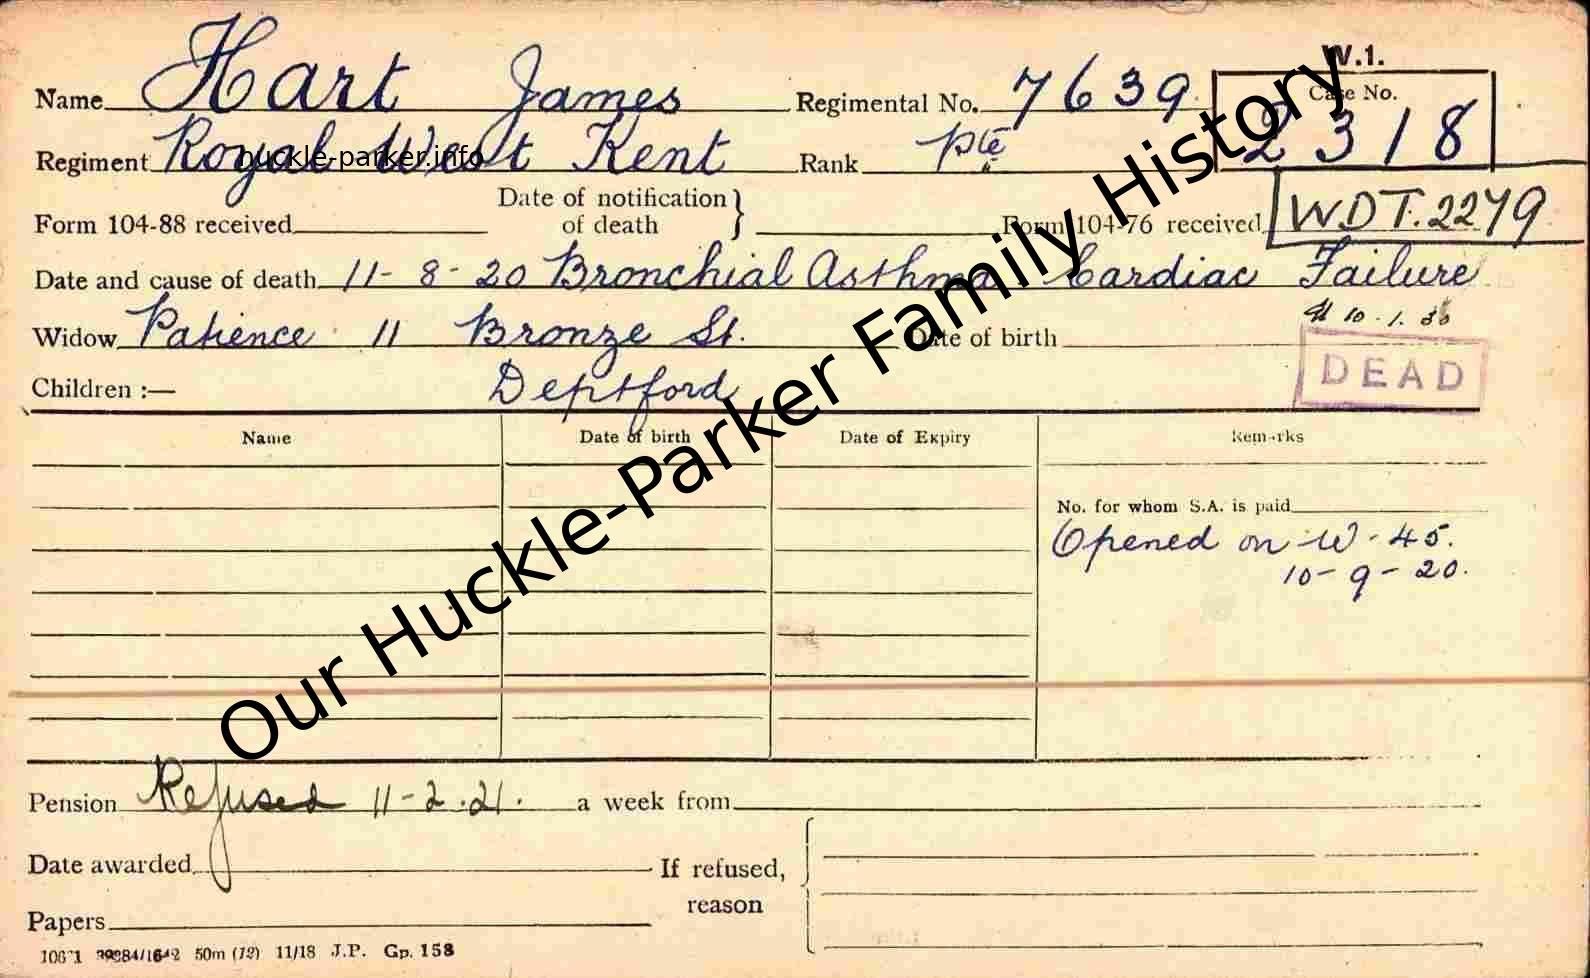 W.1.
Name Hart James Regimental No. 7639 Case No. 2318
Regiment Royal West Kent Rank Pte
huckle-parker.info
Form 104-88 received Date of notification of death } Form 104-76 received WDT. 2279
Date and cause of death 11-8-20 Bronchial Asthma Cardiac Failure
Widow Patience 11 Bronze St. Date of birth 10.1.
Children :— Deptford DEAD
Name Date of birth Date of Expiry Remarks
No. for whom S.A. is paid
Opened on W-45.
10-9-20.
Our Huckle-Parker Family History
Pension Refused 11-2-21. a week from
Date awarded If refused, reason
Papers
50m (12) 11/18 J.P. Gp. 158